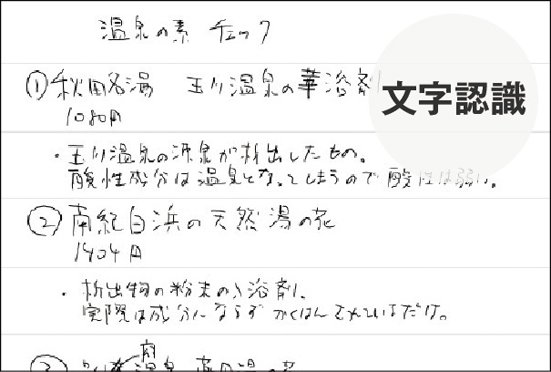 温泉の素 チェック
①秋田名湯 玉川温泉の華溶剤
文字認識
1080円
・玉川温泉の源泉が析出したもの。
酸性成分は温泉となってしまうので酸性は弱い。
②南紀白浜の天然湯の花
1404円
・析出物の粉末の入溶剤。
実際は成分にならず かくはんされているだけ。
③別府温泉 湯の花